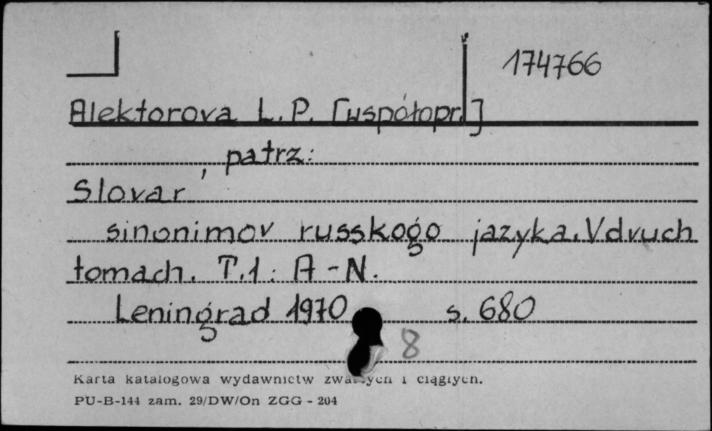 174766
Alektorova L.P. [współopr.]
patrz:
Slovar'
sinonimov russkogo jazyka. V dvuch
tomach. T.1: A-N.
Leningrad 1970 s. 680
8
Karta katalogowa wydawnictw zwartych i ciągłych.
PU-B-144 zam. 29/DW/On ZGG - 204